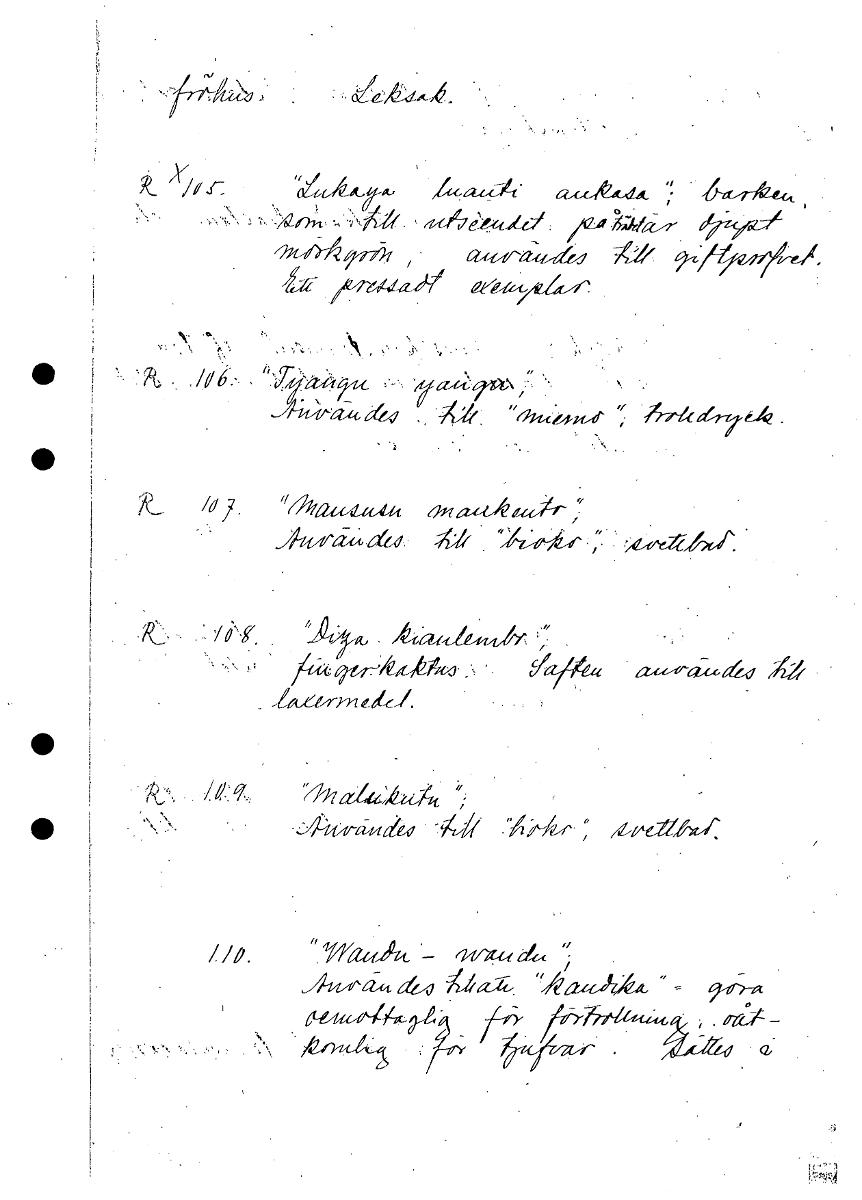 fröhus. Leksak.
R X 105. "Lukaya luanti ankasa"; barken,
som till utseendet på trädet är djupt
mörkgrön, användes till giftprofvet.
Ett pressadt exemplar.
R 106. "Tyangu yangu",
Användes till "miemo", trolldryck.
R 107. "Mansusu mankento",
Användes till "bioko", svettbad.
R 108. "Diza kianlembo",
fingerkaktus. Saften användes till
laxermedel.
R 109. "Malukutu";
Användes till "bioko", svettbad.
110. "Wandu - wandu";
Användes till att "kandika" = göra
oemottaglig för förtrollning, oåt-
komlig för tjufvar. Sättes i